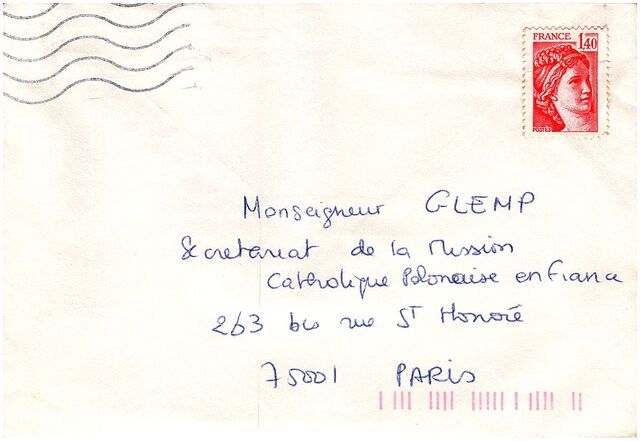 FRANCE 1,40
POSTES
Monseigneur GLEMP
Secretariat de la Mission
Catholique Polonaise en France
263 bis rue ST Honoré
75001 PARIS